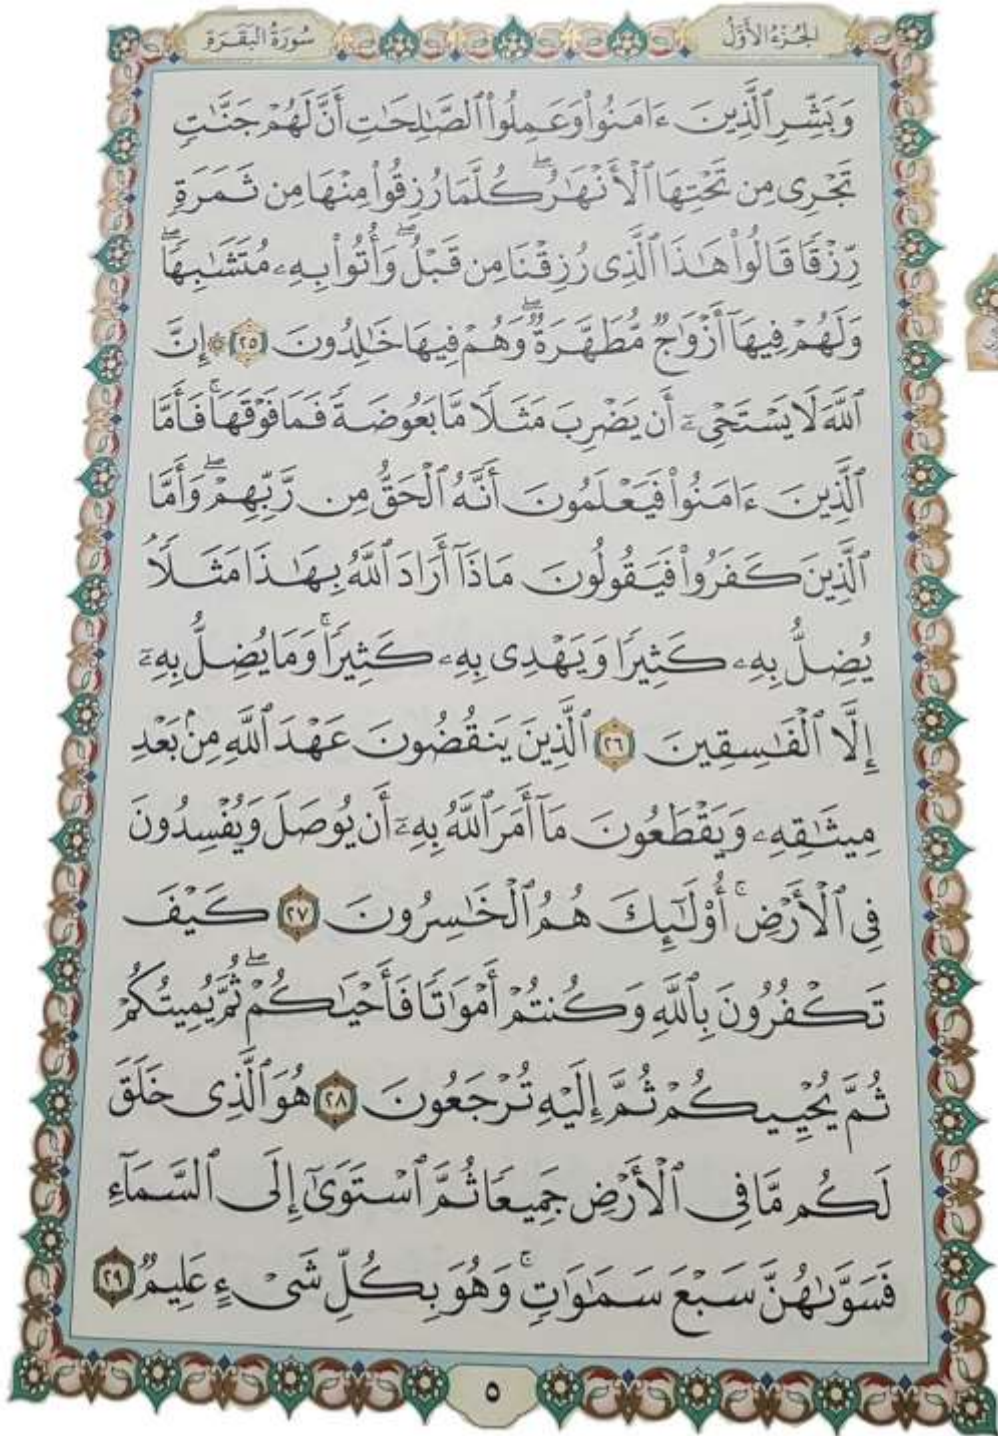 الجُزْءُ الأَوَّلُ
سُورَةُ البَقَرَةِ
وَبَشِّرِ ٱلَّذِينَ ءَامَنُوا۟ وَعَمِلُوا۟ ٱلصَّٰلِحَٰتِ أَنَّ لَهُمْ جَنَّٰتٍ
تَجْرِى مِن تَحْتِهَا ٱلْأَنْهَٰرُ ۖ كُلَّمَا رُزِقُوا۟ مِنْهَا مِن ثَمَرَةٍ
رِّزْقًا قَالُوا۟ هَٰذَا ٱلَّذِى رُزِقْنَا مِن قَبْلُ ۖ وَأُتُوا۟ بِهِۦ مُتَشَٰبِهًا ۖ
وَلَهُمْ فِيهَآ أَزْوَٰجٌ مُّطَهَّرَةٌ ۖ وَهُمْ فِيهَا خَٰلِدُونَ ٢٥ ۞ إِنَّ
ٱللَّهَ لَا يَسْتَحْىِۦٓ أَن يَضْرِبَ مَثَلًا مَّا بَعُوضَةً فَمَا فَوْقَهَا ۚ فَأَمَّا
ٱلَّذِينَ ءَامَنُوا۟ فَيَعْلَمُونَ أَنَّهُ ٱلْحَقُّ مِن رَّبِّهِمْ ۖ وَأَمَّا
ٱلَّذِينَ كَفَرُوا۟ فَيَقُولُونَ مَاذَآ أَرَادَ ٱللَّهُ بِهَٰذَا مَثَلًا ۘ
يُضِلُّ بِهِۦ كَثِيرًا وَيَهْدِى بِهِۦ كَثِيرًا ۚ وَمَا يُضِلُّ بِهِۦٓ
إِلَّا ٱلْفَٰسِقِينَ ٢٦ ٱلَّذِينَ يَنقُضُونَ عَهْدَ ٱللَّهِ مِنۢ بَعْدِ
مِيثَٰقِهِۦ وَيَقْطَعُونَ مَآ أَمَرَ ٱللَّهُ بِهِۦٓ أَن يُوصَلَ وَيُفْسِدُونَ
فِى ٱلْأَرْضِ ۚ أُو۟لَٰٓئِكَ هُمُ ٱلْخَٰسِرُونَ ٢٧ كَيْفَ
تَكْفُرُونَ بِٱللَّهِ وَكُنتُمْ أَمْوَٰتًا فَأَحْيَٰكُمْ ۖ ثُمَّ يُمِيتُكُمْ
ثُمَّ يُحْيِيكُمْ ثُمَّ إِلَيْهِ تُرْجَعُونَ ٢٨ هُوَ ٱلَّذِى خَلَقَ
لَكُم مَّا فِى ٱلْأَرْضِ جَمِيعًا ثُمَّ ٱسْتَوَىٰٓ إِلَى ٱلسَّمَآءِ
فَسَوَّىٰهُنَّ سَبْعَ سَمَٰوَٰتٍ ۚ وَهُوَ بِكُلِّ شَىْءٍ عَلِيمٌ ٢٩
٥